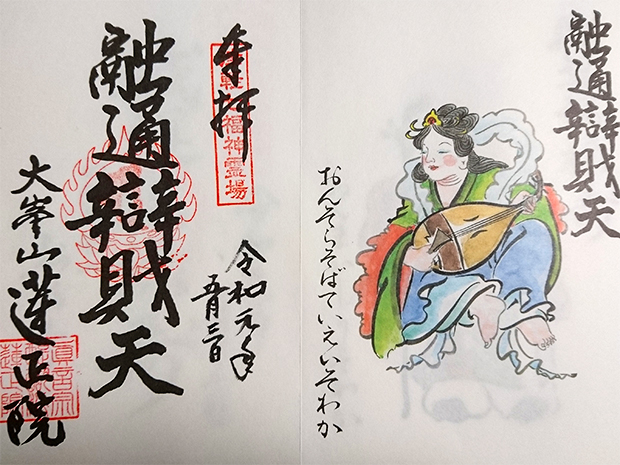 融通辯財天
おんそらそばていえいそわか
奉拝
福神霊場
令和元年
五月三日
融通辯財天
大峯山蓮正院
真言宗
蓮正院